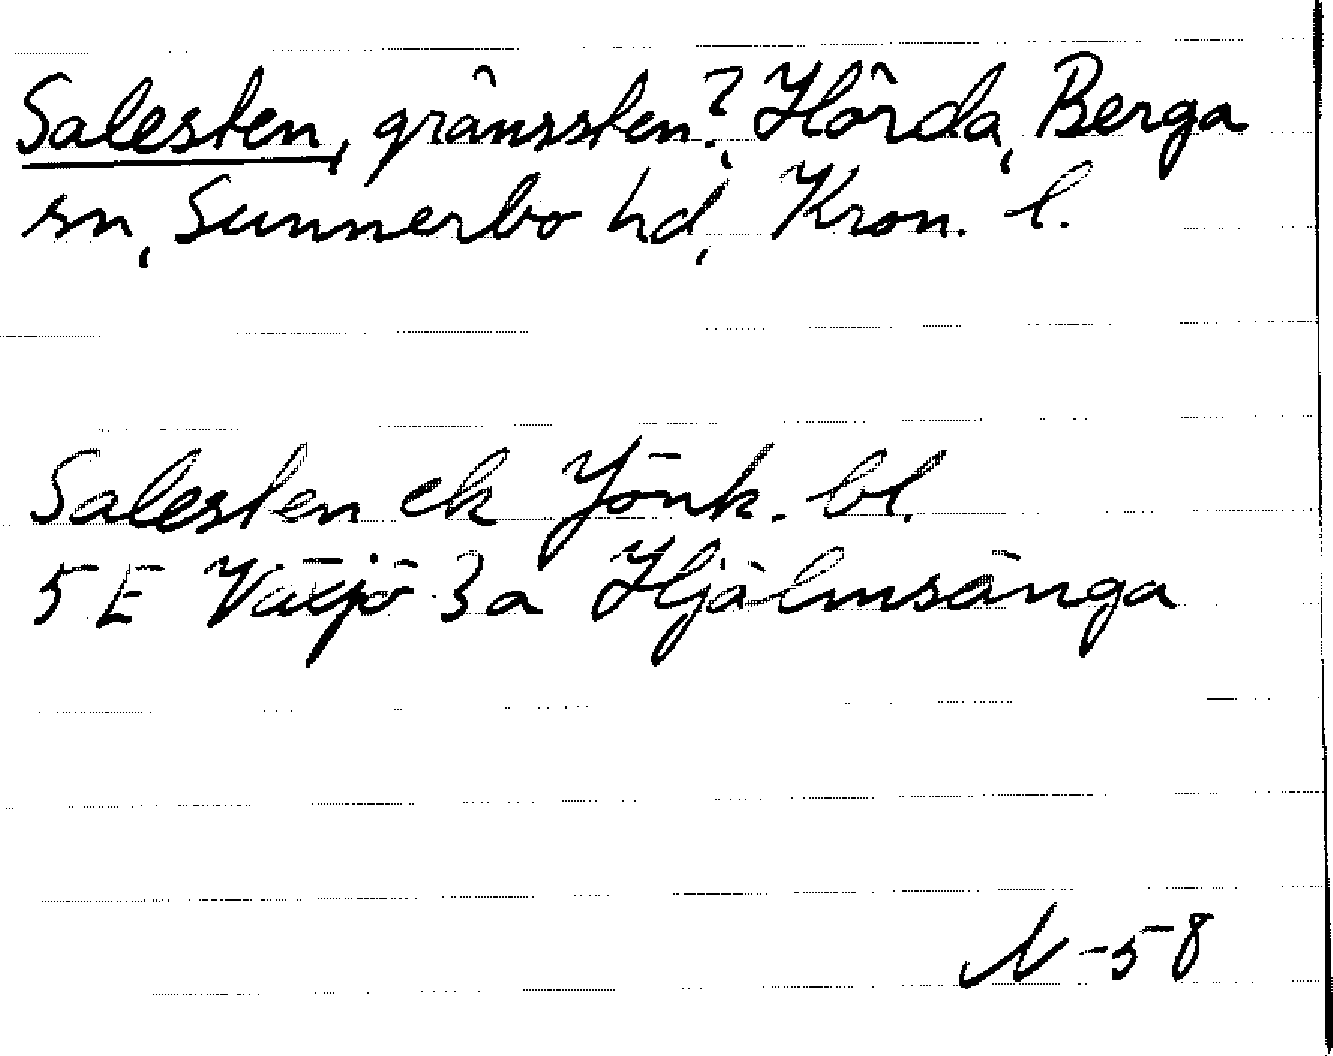 Salesten, gränssten?, Hörda, Berga
sn, Sunnerbo hd, Kron. l.
Salesten ek Jönk. bl.
5 E Växjö 3a Hjälmsänga
N-58